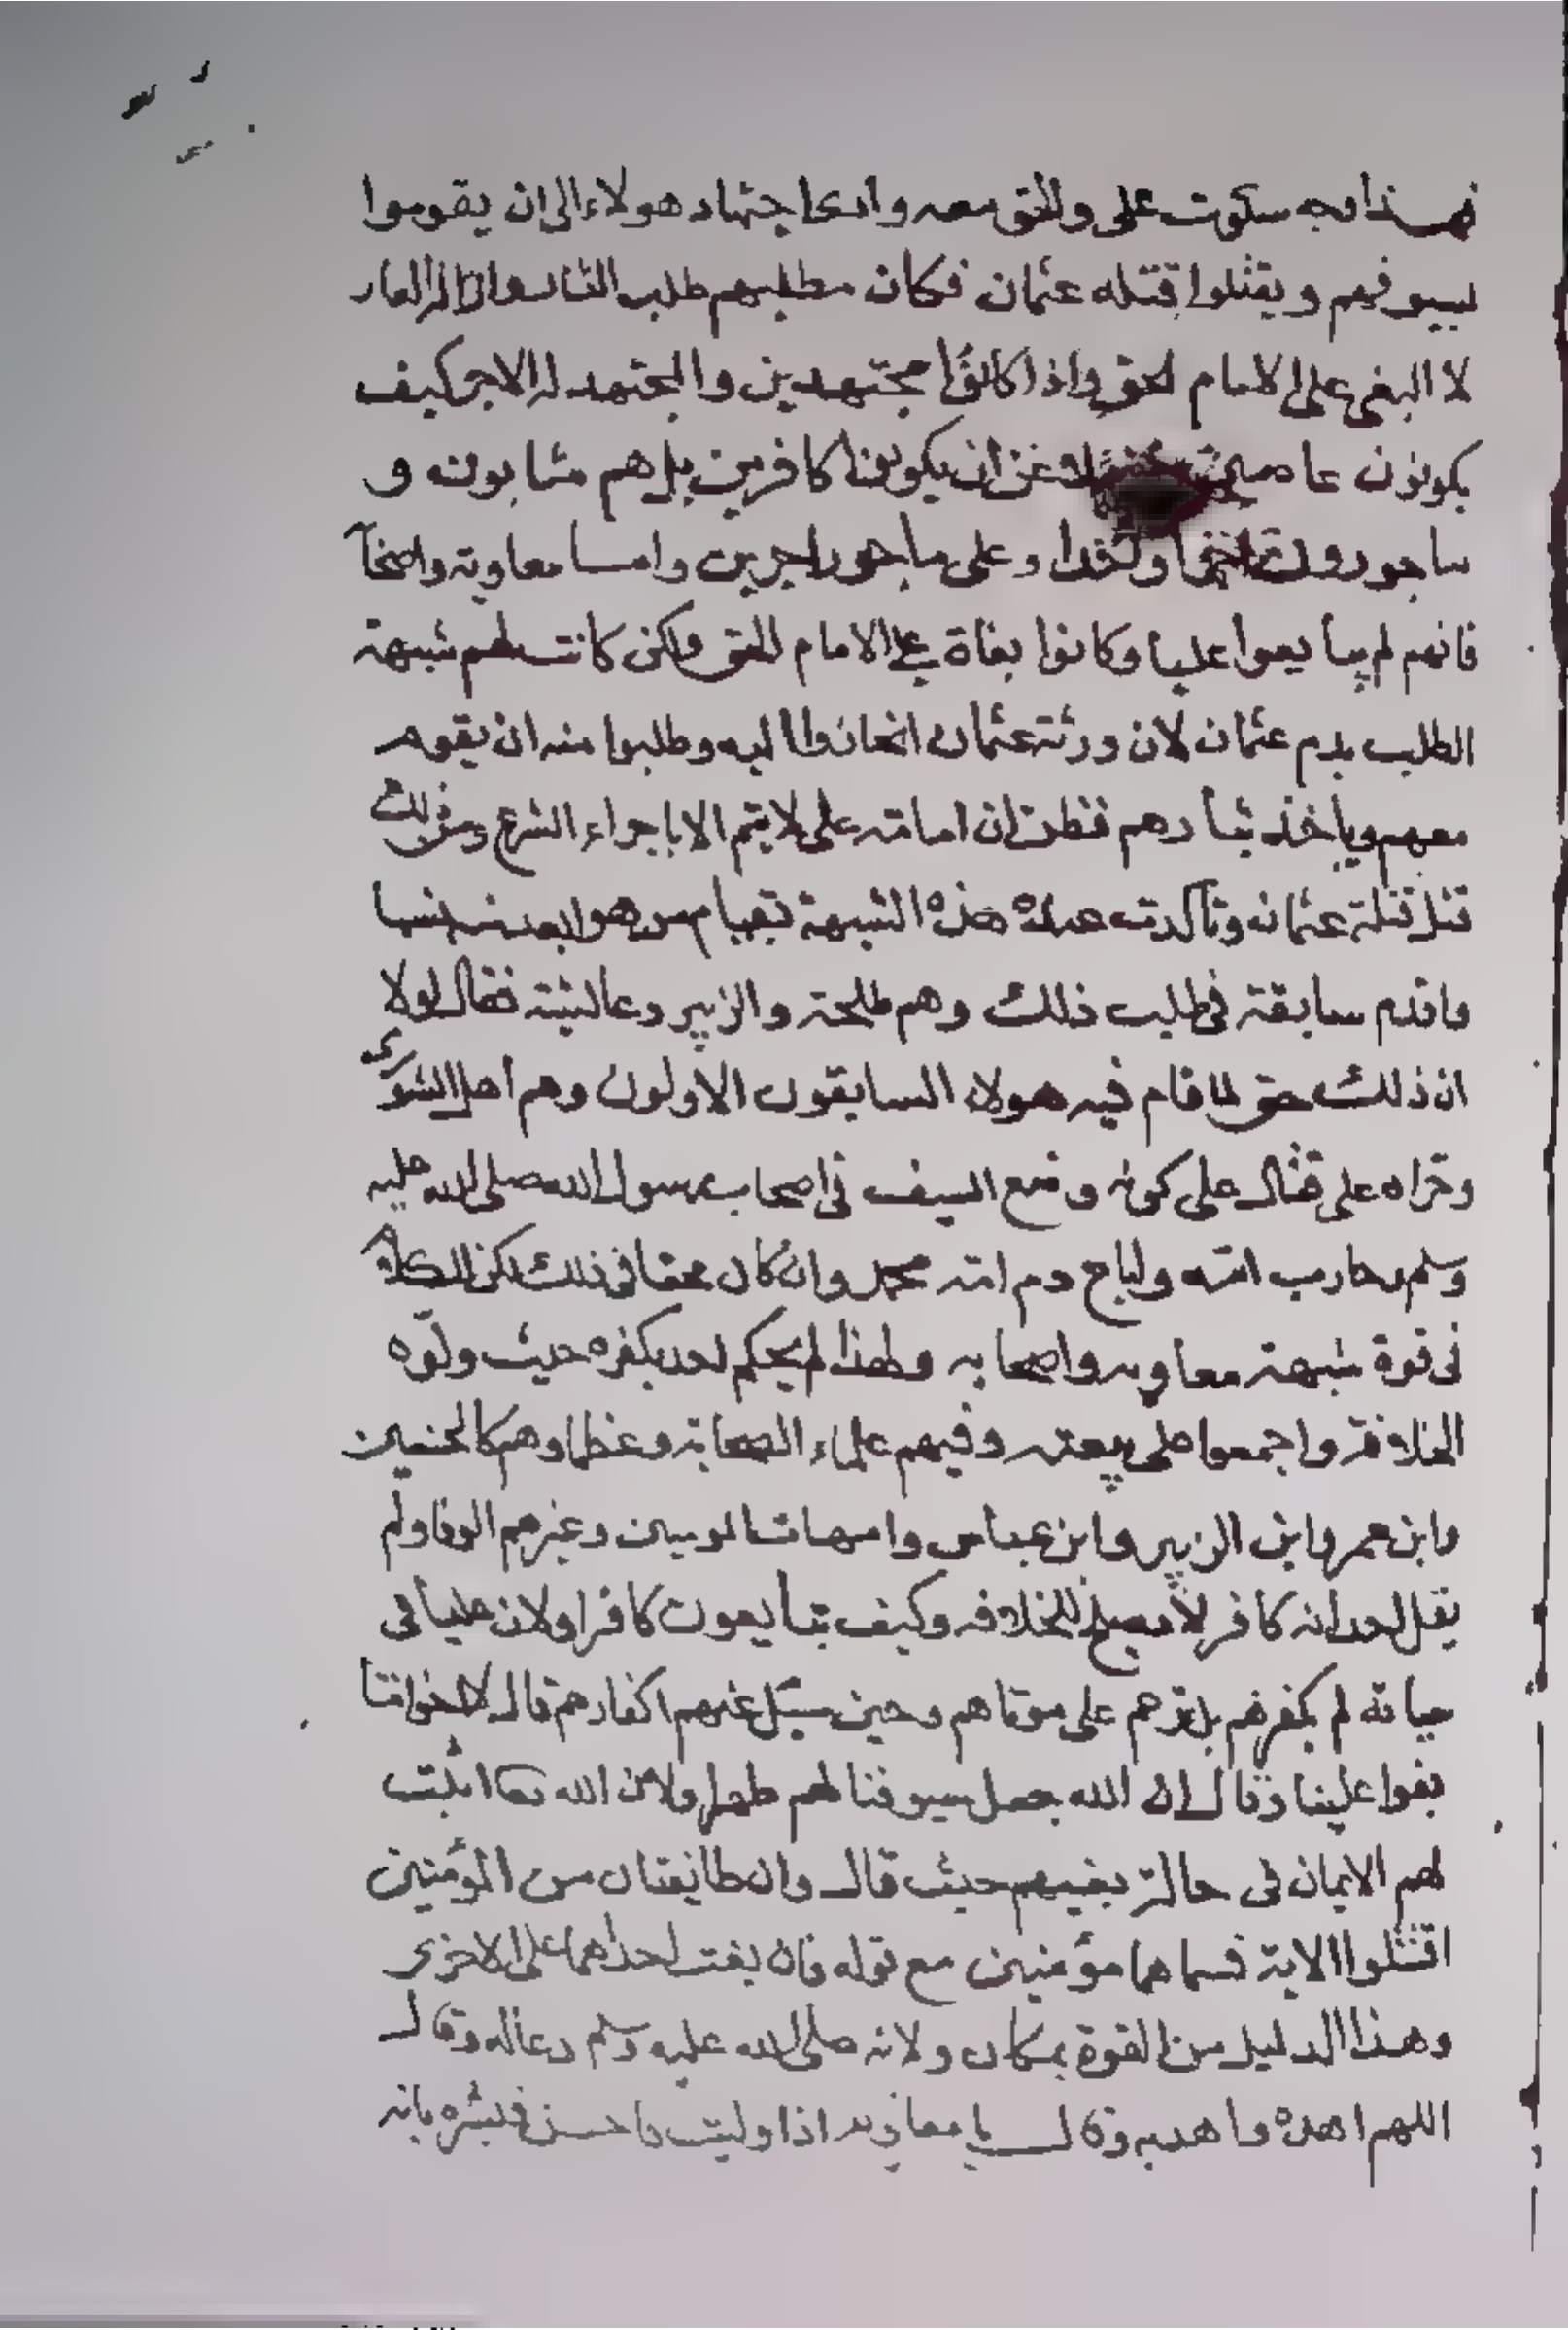 فهذا وجه سكوت على والحق معه وادى اجتهاد هولاء الى ان يقوموا
بسيوفهم ويقتلوا قتله عثمان فكان مطلبهم طلب الثار وازالة العار
لا البغى على الامام الحق واذا كانوا مجتهدين والمجتهد له الاجر كيف
يكونون عاصين فضلا عن ان يكونوا كافرين بل هم مثابون و
ماجورون اجرا واحدا وعلى ماجور اجرين واما معاوية واصحا
فانهم لم يبايعوا عليا وكانوا بغاة على الامام الحق ولكن كانت لهم شبهة
الطلب بدم عثمان لان ورثة عثمان انحازوا اليه وطلبوا منه ان يقوم
معهم وياخذ بثارهم فظن ان امامة على لا يتم الا باجراء الشرع ومن ذلك
قتل قتلة عثمان وتاكدت عنده هذه الشبهة بقيام من هو ابعد نسبا
واقدم سابقة فى طلب ذلك وهم طلحة والزبير وعائشة فقال لولا
ان ذلك حق لما قام فيه هولاء السابقون الاولون وهم اهل الشورى
وجراه على قتال على كونه وضع السيف فى اصحاب رسول الله صلى الله عليه
وسلم وحارب امته واباح دم امة محمد وان كان محقا فى ذلك لكن الكلام
فى قوة شبهة معاويه واصحابه ولهذا لم يحكم احد بكفره حيث ولوه
الخلافة واجمعوا على بيعته وفيهم علماء الصحابة وعظماوهم كالحسنين
وابن عمر وابن الزبير وابن عباس وامهات المومنين وغيرهم الوفا ولم
يقل احد انه كافر لا يصلح للخلافه وكيف يبايعون كافرا ولان عليا فى
حياته لم يكفرهم بل ترحم على موتاهم وحين سئل عنهم اكفار هم قال لا اخواننا
بغوا علينا وقال ان الله جعل سيوفنا لهم طهارة ولان الله تعا اثبت
لهم الايمان فى حالة بغيهم حيث قال وان طايفتان من المؤمنين
اقتتلوا الاية فسماهما مؤمنين مع قوله فان بغت احداهما على الاخرى
وهذا الدليل من القوة بمكان ولانه صلى الله عليه وسلم دعا له وقال
اللهم اهده واهد به وقال يا معاويه اذا وليت فاحسن فبشره بانه